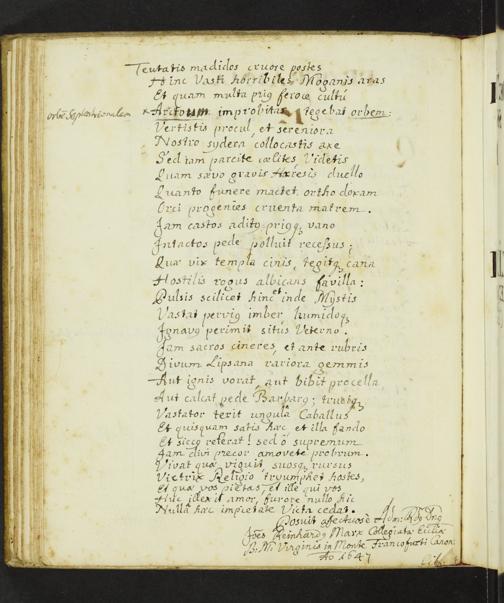 Teutatis madidos cruore postes
Hinc Vasti horribiles, Moganis aras
Et quam multa prig feroce cultú
orbē Septentrionalem × Arctoum improbitas tegebat orbem:
Vertistis procul, et sereniora
Nostro sydera collocastis axe
Sed iam parcite cælites, Videtis
Quam sævo gravis Hæresis duello
Quanto funere mactet orthodoxam
Orci progenies cruenta matrem.
Jam castos adito prigq vano
Intactos pede polluit recessus;
Quæ vix templa cinis, tegitq cana
Hostilis rogus albicans favilla:
Pulsis scilicet hinc inde Mystis
Vastat pervig imber humidoq
Ignavg perimit situs Veterno.
Jam sacros cineres, et ante rubris
Divum Lipsana rariora gemmis
Aut ignis vorat, aut bibit procella
Aut calcat pede Barbarg; truciq
Vastator terit ungula Caballus
Et quisquam satis hæc et illa fando
Et siccg referat! sed ô supremum
Jam divi precor amovete probrum.
Vivat quæ viguit, suosq rursus
Victrix Religio triumphet hostes,
Et quæ vos pietas, et ille qui vos
Huc illexit amor, furore nullo hic
Nulla hæc impietate Victa cedat.
Posuit afectuosè
Joēs Reinhardg Marx Collegiatæ Ecclīæ
B. M. Virginis in Monte Francofurti Canon:
Aō 1647